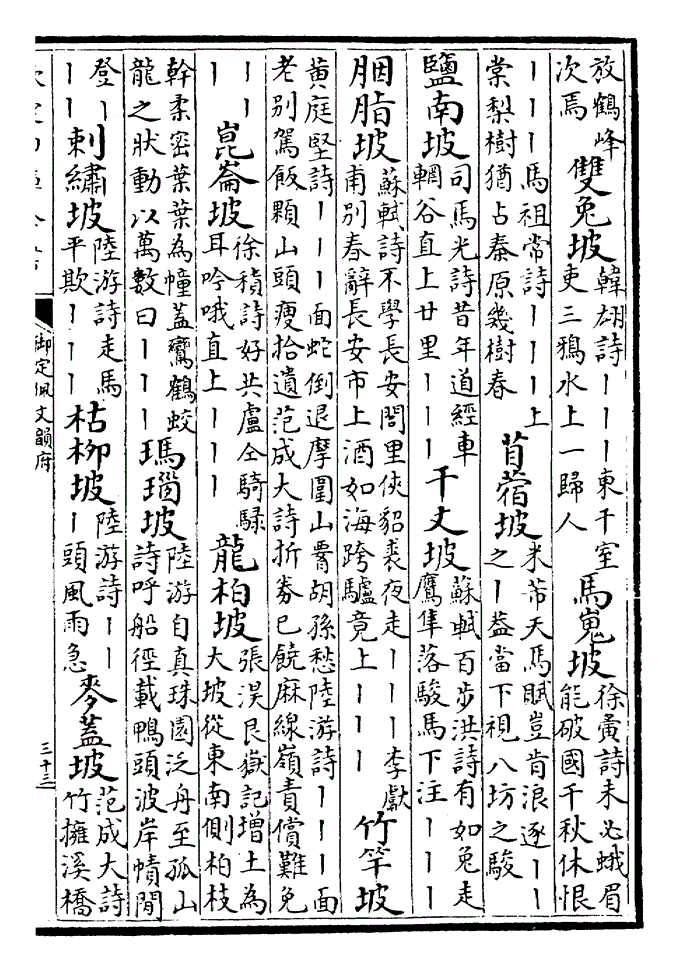 放鶴峰
次焉
雙兔坡
韓翃詩丨丨丨東千室
吏三鴉水上一歸人
馬嵬坡
徐夤詩未必蛾眉
能破國千秋休恨
丨丨丨馬祖常詩丨丨丨丨上
棠梨樹猶占秦原幾樹春
苜蓿坡
米芾天馬賦豈肯浪逐丨丨
之丨葢當下視八坊之駿
鹽南坡
司馬光詩昔年道經車
輞谷直上廿里丨丨丨
千丈坡
蘇軾百步洪詩有如兔走
鷹隼落駿馬下注丨丨丨
胭脂坡
蘇軾詩不學長安閭里俠貂裘夜走丨丨丨李獻
甫別春辭長安市上酒如海跨驢竟上丨丨丨
竹竿坡
黃庭堅詩丨丨丨面蛇倒退摩圍山胷胡孫愁陸游詩丨丨丨面
老別駕飯顆山頭瘦拾遺范成大詩折券已饒麻線嶺責償難免
丨丨
丨
崑崙坡
徐積詩好共盧仝騎騄
耳吟哦直上丨丨丨
龍柏坡
張淏艮嶽記增土為
大坡從東南側柏枝
幹柔密葉葉為幢蓋鸞鶴蛟
龍之狀動以萬數曰丨丨丨
瑪瑙坡
陸游自真珠園泛舟至孤山
詩呼船徑載鴨頭波岸幘閒
登丨
丨丨
刺繡坡
陸游詩走馬
平欺丨丨丨
枯柳坡
陸游詩丨丨
丨頭風雨急
麥蓋坡
范成大詩
竹擁溪橋
御定佩文韻府
三十三